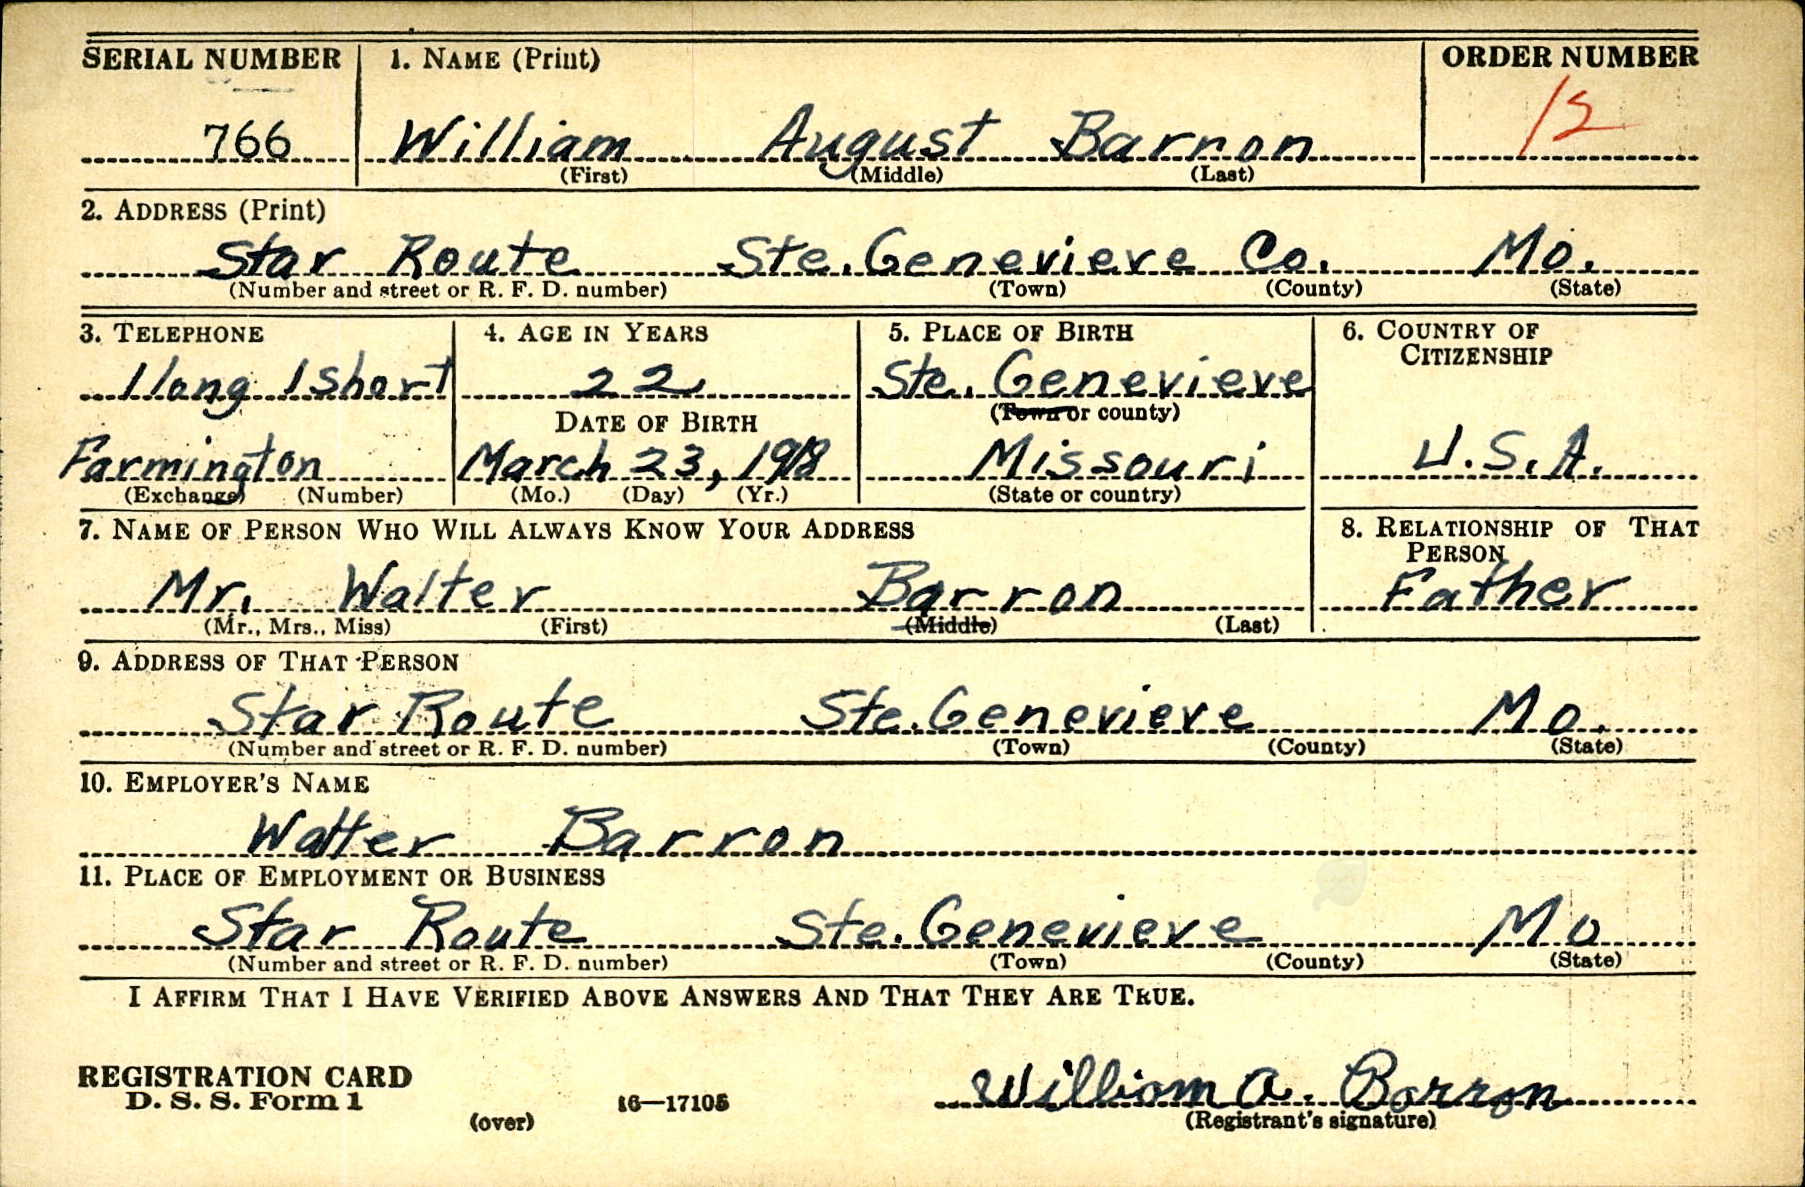 SERIAL NUMBER 1. NAME (Print) ORDER NUMBER
766 William August Barron 12
(First) (Middle) (Last)
2. ADDRESS (Print)
Star Route Ste. Genevieve Co. Mo.
(Number and street or R. F. D. number) (Town) (County) (State)
3. TELEPHONE 4. AGE IN YEARS 5. PLACE OF BIRTH 6. COUNTRY OF
CITIZENSHIP
1 long 1 short 22 Ste. Genevieve
DATE OF BIRTH (Town or county)
Farmington March 23, 1918 Missouri U.S.A.
(Exchange) (Number) (Mo.) (Day) (Yr.) (State or country)
7. NAME OF PERSON WHO WILL ALWAYS KNOW YOUR ADDRESS 8. RELATIONSHIP OF THAT
PERSON
Mr. Walter Barron Father
(Mr., Mrs., Miss) (First) (Middle) (Last)
9. ADDRESS OF THAT PERSON
Star Route Ste. Genevieve Mo.
(Number and street or R. F. D. number) (Town) (County) (State)
10. EMPLOYER'S NAME
Walter Barron
11. PLACE OF EMPLOYMENT OR BUSINESS
Star Route Ste. Genevieve Mo
(Number and street or R. F. D. number) (Town) (County) (State)
I AFFIRM THAT I HAVE VERIFIED ABOVE ANSWERS AND THAT THEY ARE TRUE.
REGISTRATION CARD
D. S. S. Form 1 (over) 16—17105 William A. Barron
(Registrant's signature)